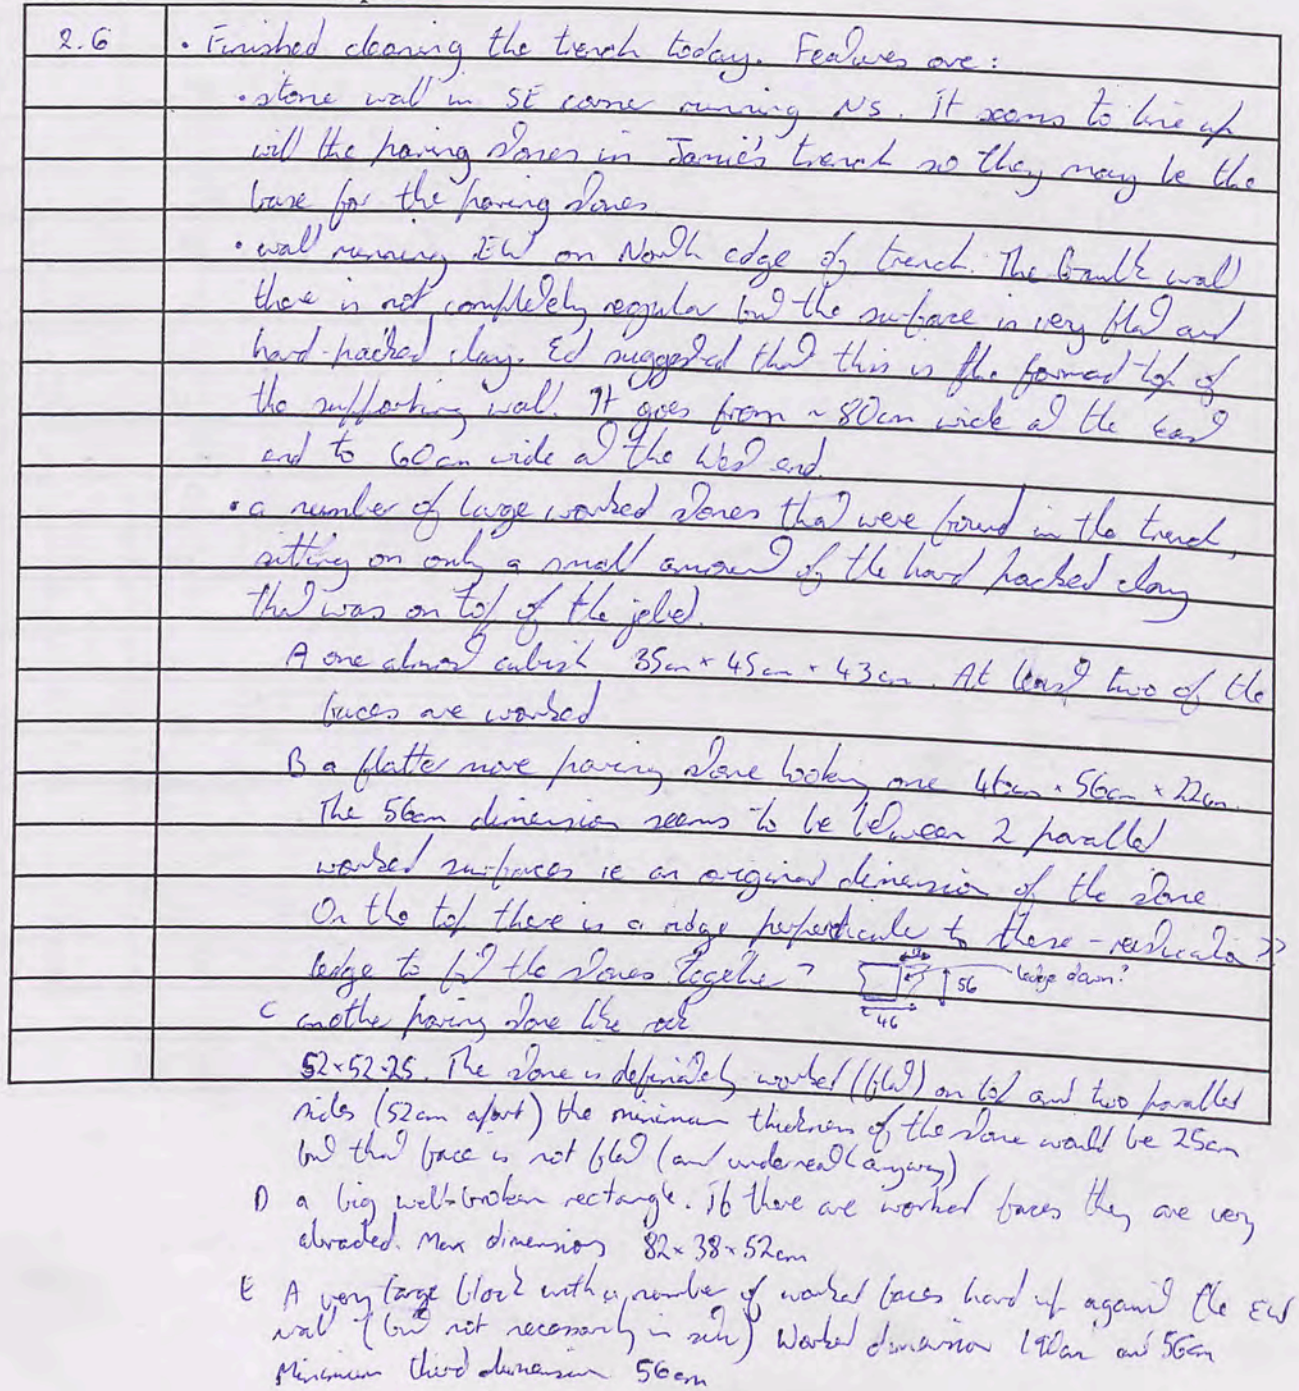 2.6 • Finished cleaning the trench today. Features are:
• stone wall in SE corner running NS. It seems to line up
will the paving stones in Jamie's trench so they may be the
base for the paving stones
• wall running EW on North edge of trench. The baulk wall
there is not completely regular but the surface is very flat and
hard-packed clay. Ed suggested that this is the formed top of
the supporting wall. It goes from ~80cm wide at the East
end to 60cm wide at the West end.
• a number of large worked stones that were found in the trench,
sitting on only a small amount of the hard packed clay
that was on top of the jebel.
A one almost cubish 35cm × 45cm × 43cm. At least two of the
faces are worked
B a flatter more paving stone looking one 46cm × 56cm × 22cm.
The 56cm dimension seems to be between 2 parallel
worked surfaces ie an original dimension of the stone.
On the top there is a ridge perpendicular to these -
ledge to fit the stones together? 56 ledge down?
46
C another paving stone like rock
52×52×25. The stone is definitely worked (flat) on top and two parallel
sides (52cm apart) the minimum thickness of the stone would be 25cm
but that face is not flat (and underneath anyway)
D a big well-broken rectangle. If there are worked faces they are very
abraded. Max dimensions 82×38×52cm
E A very large block with a number of worked faces hard up against the EW
wall (but not necessarily in situ) Worked dimension 190cm and 56cm
Minimum third dimension 56cm